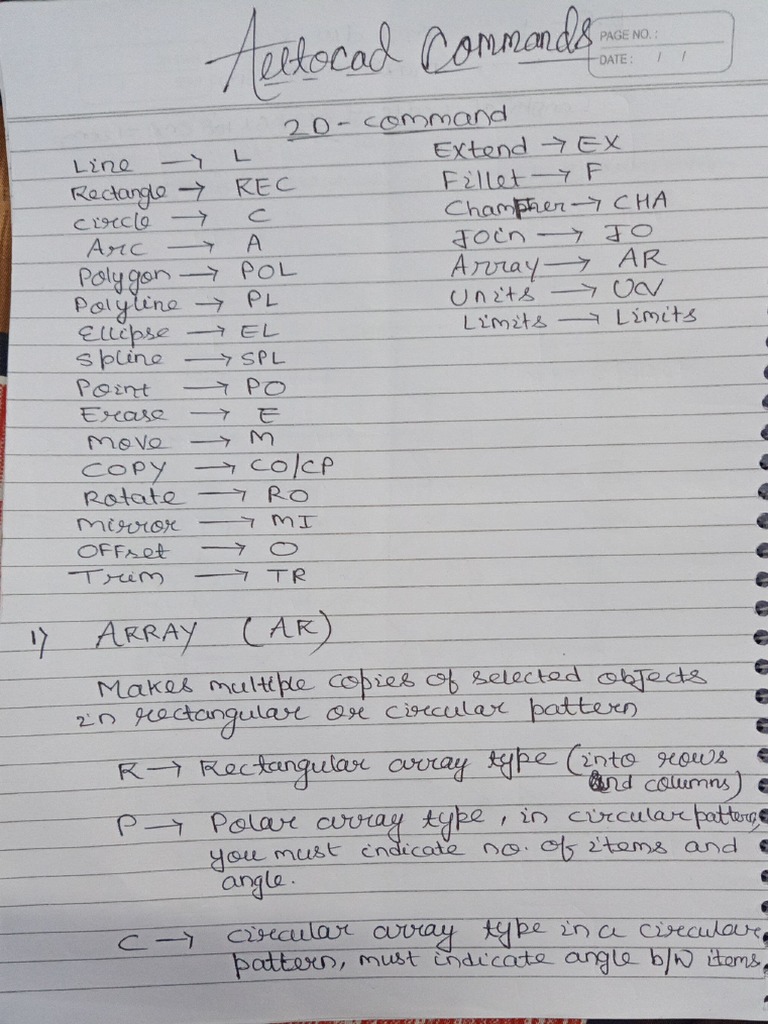 Autocad Commands
PAGE NO.:
DATE: / /
2D-command
Line → L
Rectangle → REC
Circle → C
Arc → A
Polygon → POL
Polyline → PL
Ellipse → EL
Spline → SPL
Point → PO
Erase → E
Move → M
COPY → CO/CP
Rotate → RO
Mirror → MI
OFFset → O
Trim → TR
Extend → EX
Fillet → F
Champher → CHA
Join → JO
Array → AR
Units → UN
Limits → Limits
1) ARRAY (AR)
Makes multiple copies of selected objects
in rectangular or circular pattern
R → Rectangular array type (into rows
and columns)
P → Polar array type, in circular pattern,
you must indicate no. of items and
angle.
C → circular array type in a circular
pattern, must indicate angle b/w items